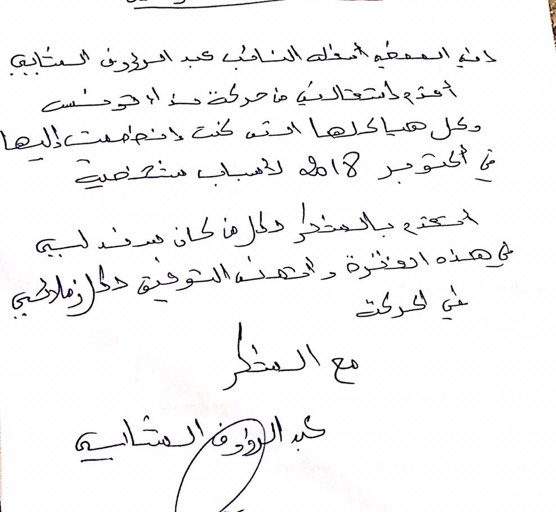 اني الممضي أسفله النائب عبد الرؤوف الشابي
أقدم استقالتي من حركة نداء تونس
وكل هياكلها التي كنت انضممت إليها
في أكتوبر 2018 لأسباب شخصية
أتقدم بالشكر لكل من كان سند لي
في هذه الفترة و أتمنى التوفيق لكل زملائي
في الحركة
مع الشكر
عبد الرؤوف الشابي